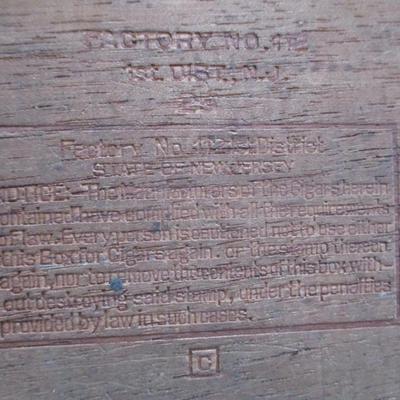 FACTORY NO. 412
1st. DIST., N. J.
25
Factory No. 412 1st District
STATE OF NEW JERSEY
NOTICE:-The Manufacturers of the Cigars herein
contained have complied with all the requirements
of law. Every person is cautioned not to use either
this Box for Cigars again, or the stamp thereon
again, nor to remove the contents of this box with-
out destroying said stamp, under the penalties
provided by law in such cases.
C